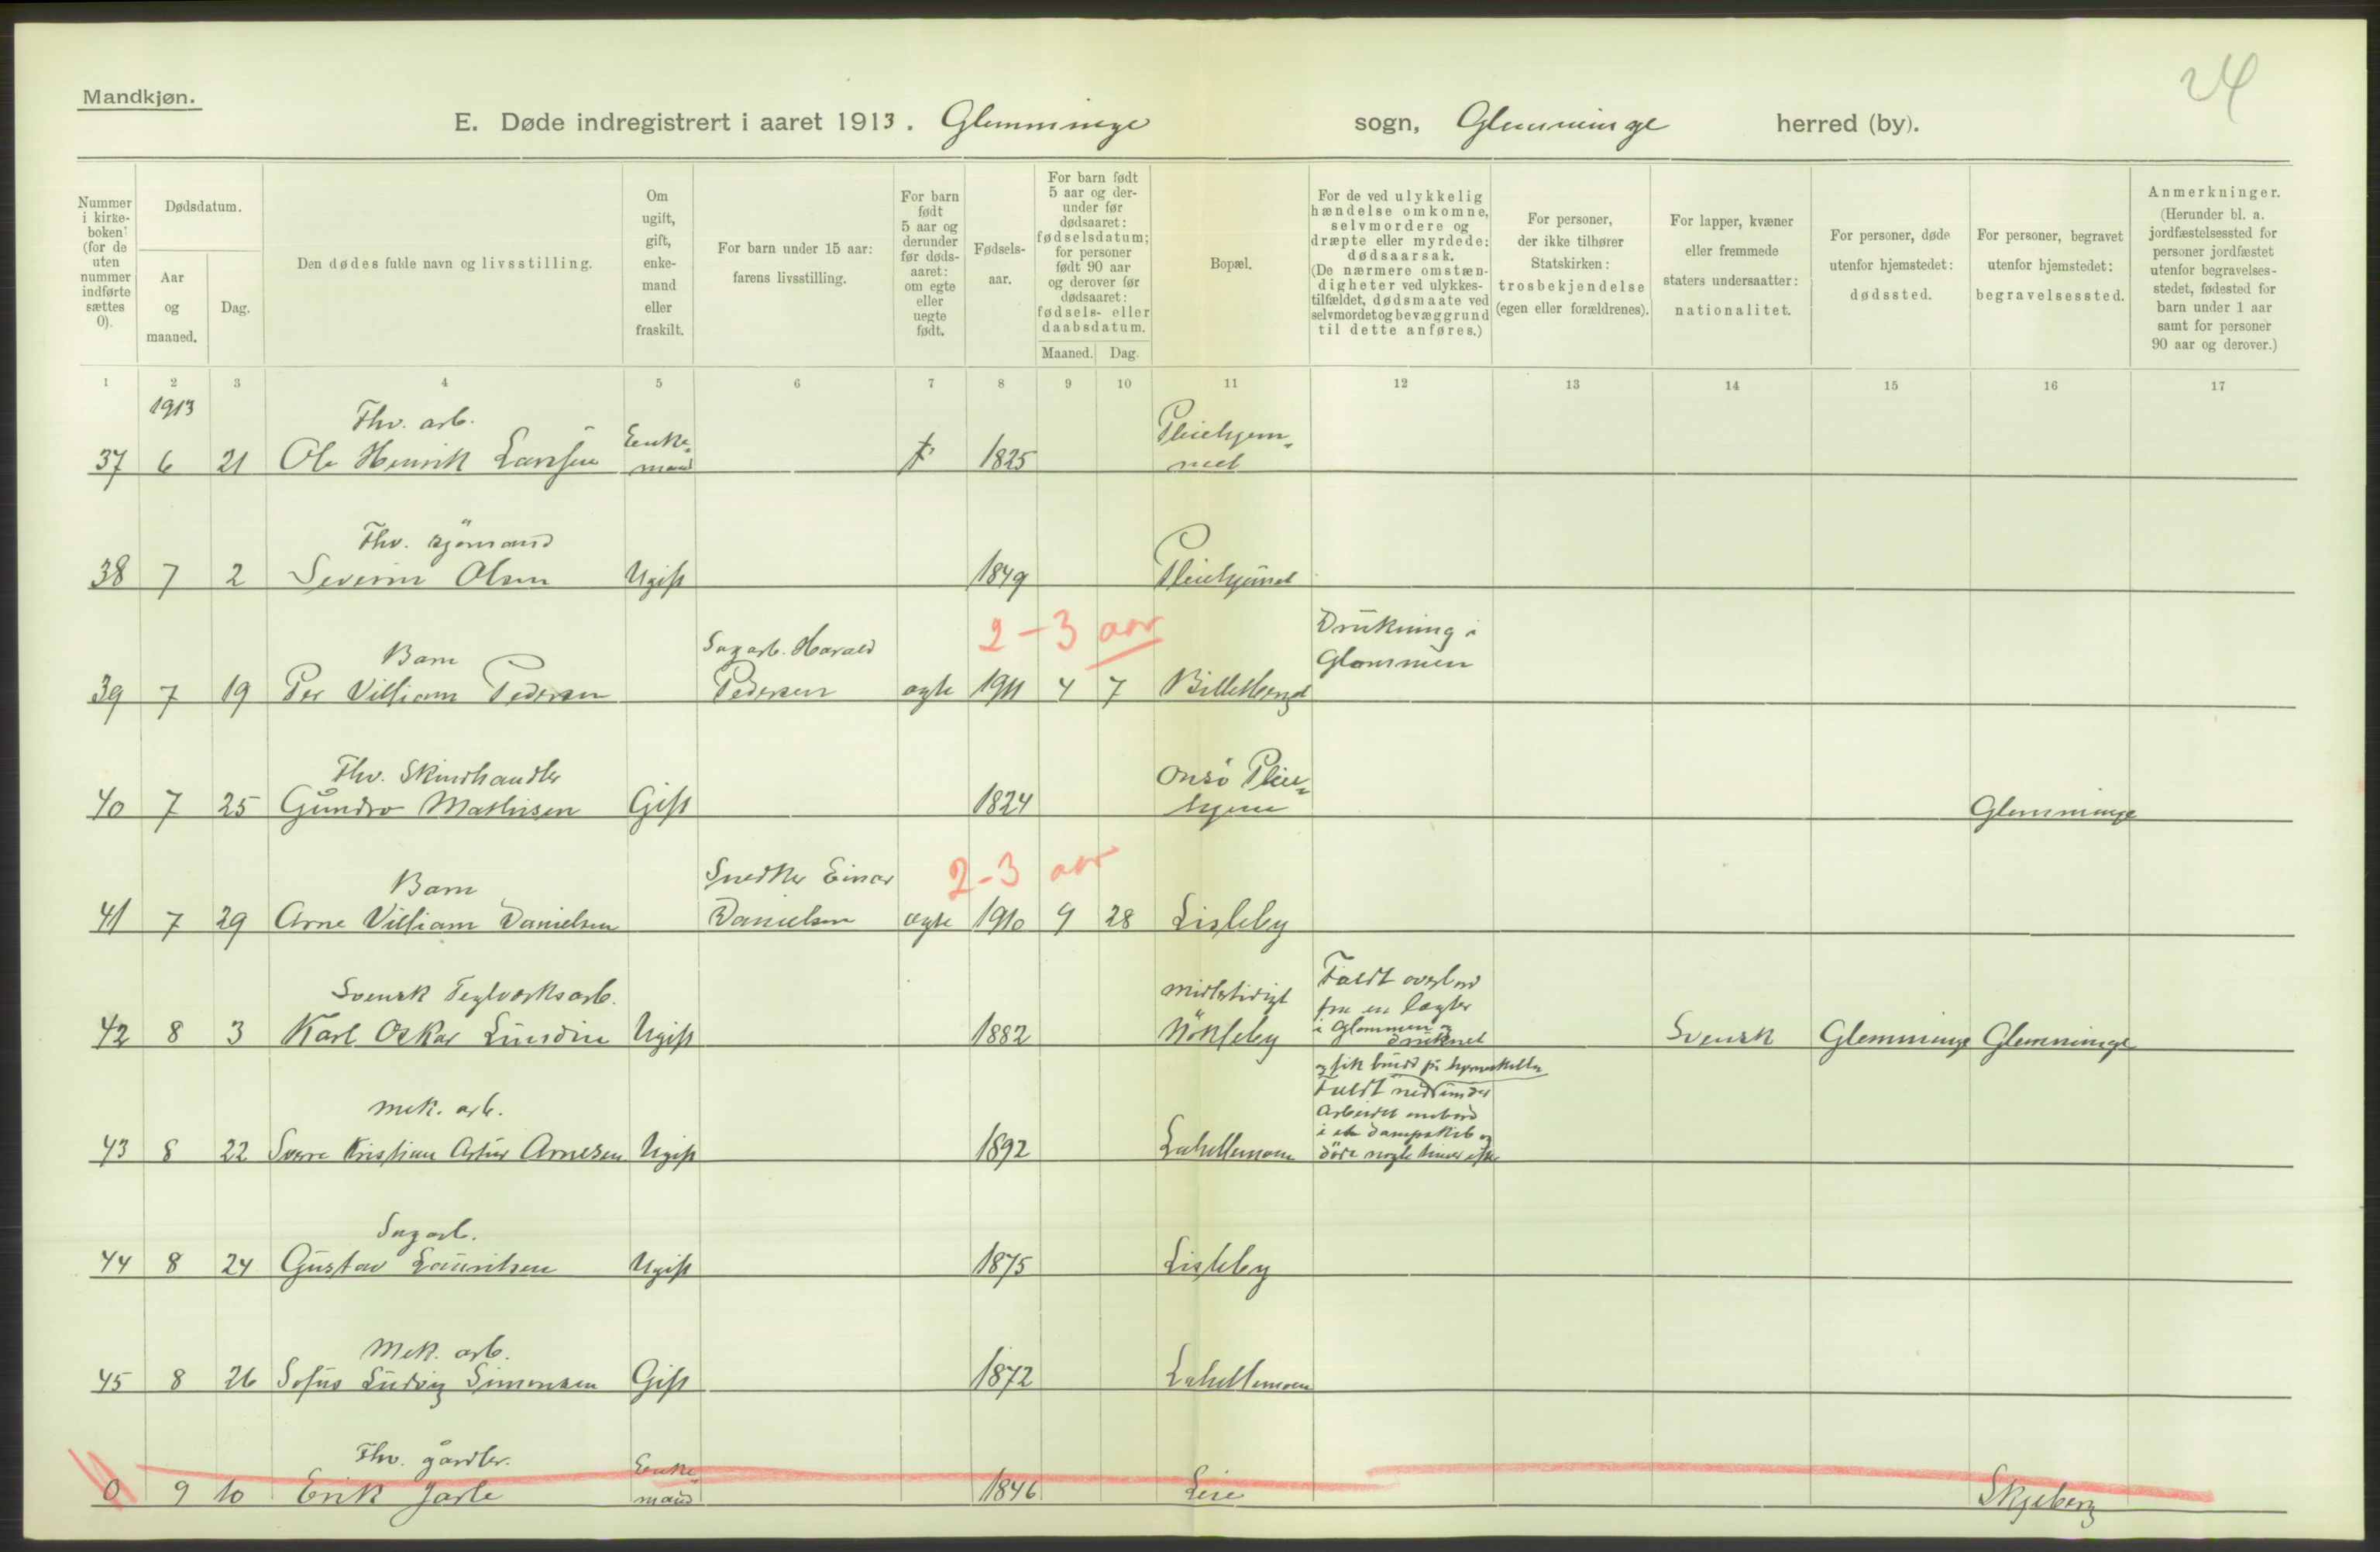 24
Mandkjøn.
E. Døde indregistrert i aaret 1913. Glemminge sogn, Glemminge herred (by).
Nummer i kirke-boken (for de uten nummer indførte sættes 0).
Dødsdatum.
Aar og maaned.
Dag.
Den dødes fulde navn og livsstilling.
Om ugift, gift, enke-mand eller fraskilt.
For barn under 15 aar: farens livsstilling.
For barn født 5 aar og derunder før døds-aaret: om egte eller uegte født.
Fødsels-aar.
For barn født 5 aar og der-under før dødsaaret: fødselsdatum; for personer født 90 aar og derover før dødsaaret: fødsels- eller daabsdatum.
Maaned. Dag.
Bopæl.
For de ved ulykkelig hændelse omkomne, selvmordere og dræpte eller myrdede: dødsaarsak. (De nærmere omstæn-digheter ved ulykkes-tilfældet, dødsmaate ved selvmordet og bevæggrund til dette anføres.)
For personer, der ikke tilhører Statskirken: trosbekjendelse (egen eller forældrenes).
For lapper, kvæner eller fremmede staters undersaatter: nationalitet.
For personer, døde utenfor hjemstedet: dødssted.
For personer, begravet utenfor hjemstedet: begravelsessted.
Anmerkninger. (Herunder bl. a. jordfæstelsessted for personer jordfæstet utenfor begravelses-stedet, fødested for barn under 1 aar samt for personer 90 aar og derover.)
1 2 3 4 5 6 7 8 9 10 11 12 13 14 15 16 17
1913
Fhv. arb. Enke- Pleiehjem-
37 6 21 Ole Henrik Larsen mand 1825 met
Fhv. sjömand
38 7 2 Severin Olsen Ugift 1849 Pleiehjemmet
2-3 aar
Barn Sagarb. Harald Drukning i Glommen
39 7 19 Per Villiam Pedersen Pedersen egte 1911 4 7
Fhv. Skindhandler Onsö Pleie-
40 7 25 Gundro Mathisen Gift 1824 hjem Glemminge
2-3 aar
Barn Snedker Einar
41 7 29 Arne Villiam Danielsen Danielsen egte 1910 9 28 Lisleby
Svensk Teglverksarb. midlertidigt Faldt overbord fra en lægter
42 8 3 Karl Oskar Lundin Ugift 1882 Nökleby i Glommen og druknet Svensk Glemminge Glemminge
og fik brudd på hjerneskallen
Mek. arb. Faldt ned under Arbeidet ombord
i et dampskib og
43 8 22 Sverre Kristian Artur Arnesen Ugift 1892 Lahellemoen döde nogle timer efter
Sagarb.
44 8 24 Gustav Lauritsen Ugift 1875 Lisleby
Mek. arb.
45 8 26 Sofus Ludvig Simonsen Gift 1872 Lahellemoen
Fhv. gårdbr. Enke-
0 9 10 Erik Jarle mand 1846 Leie Skjeberg